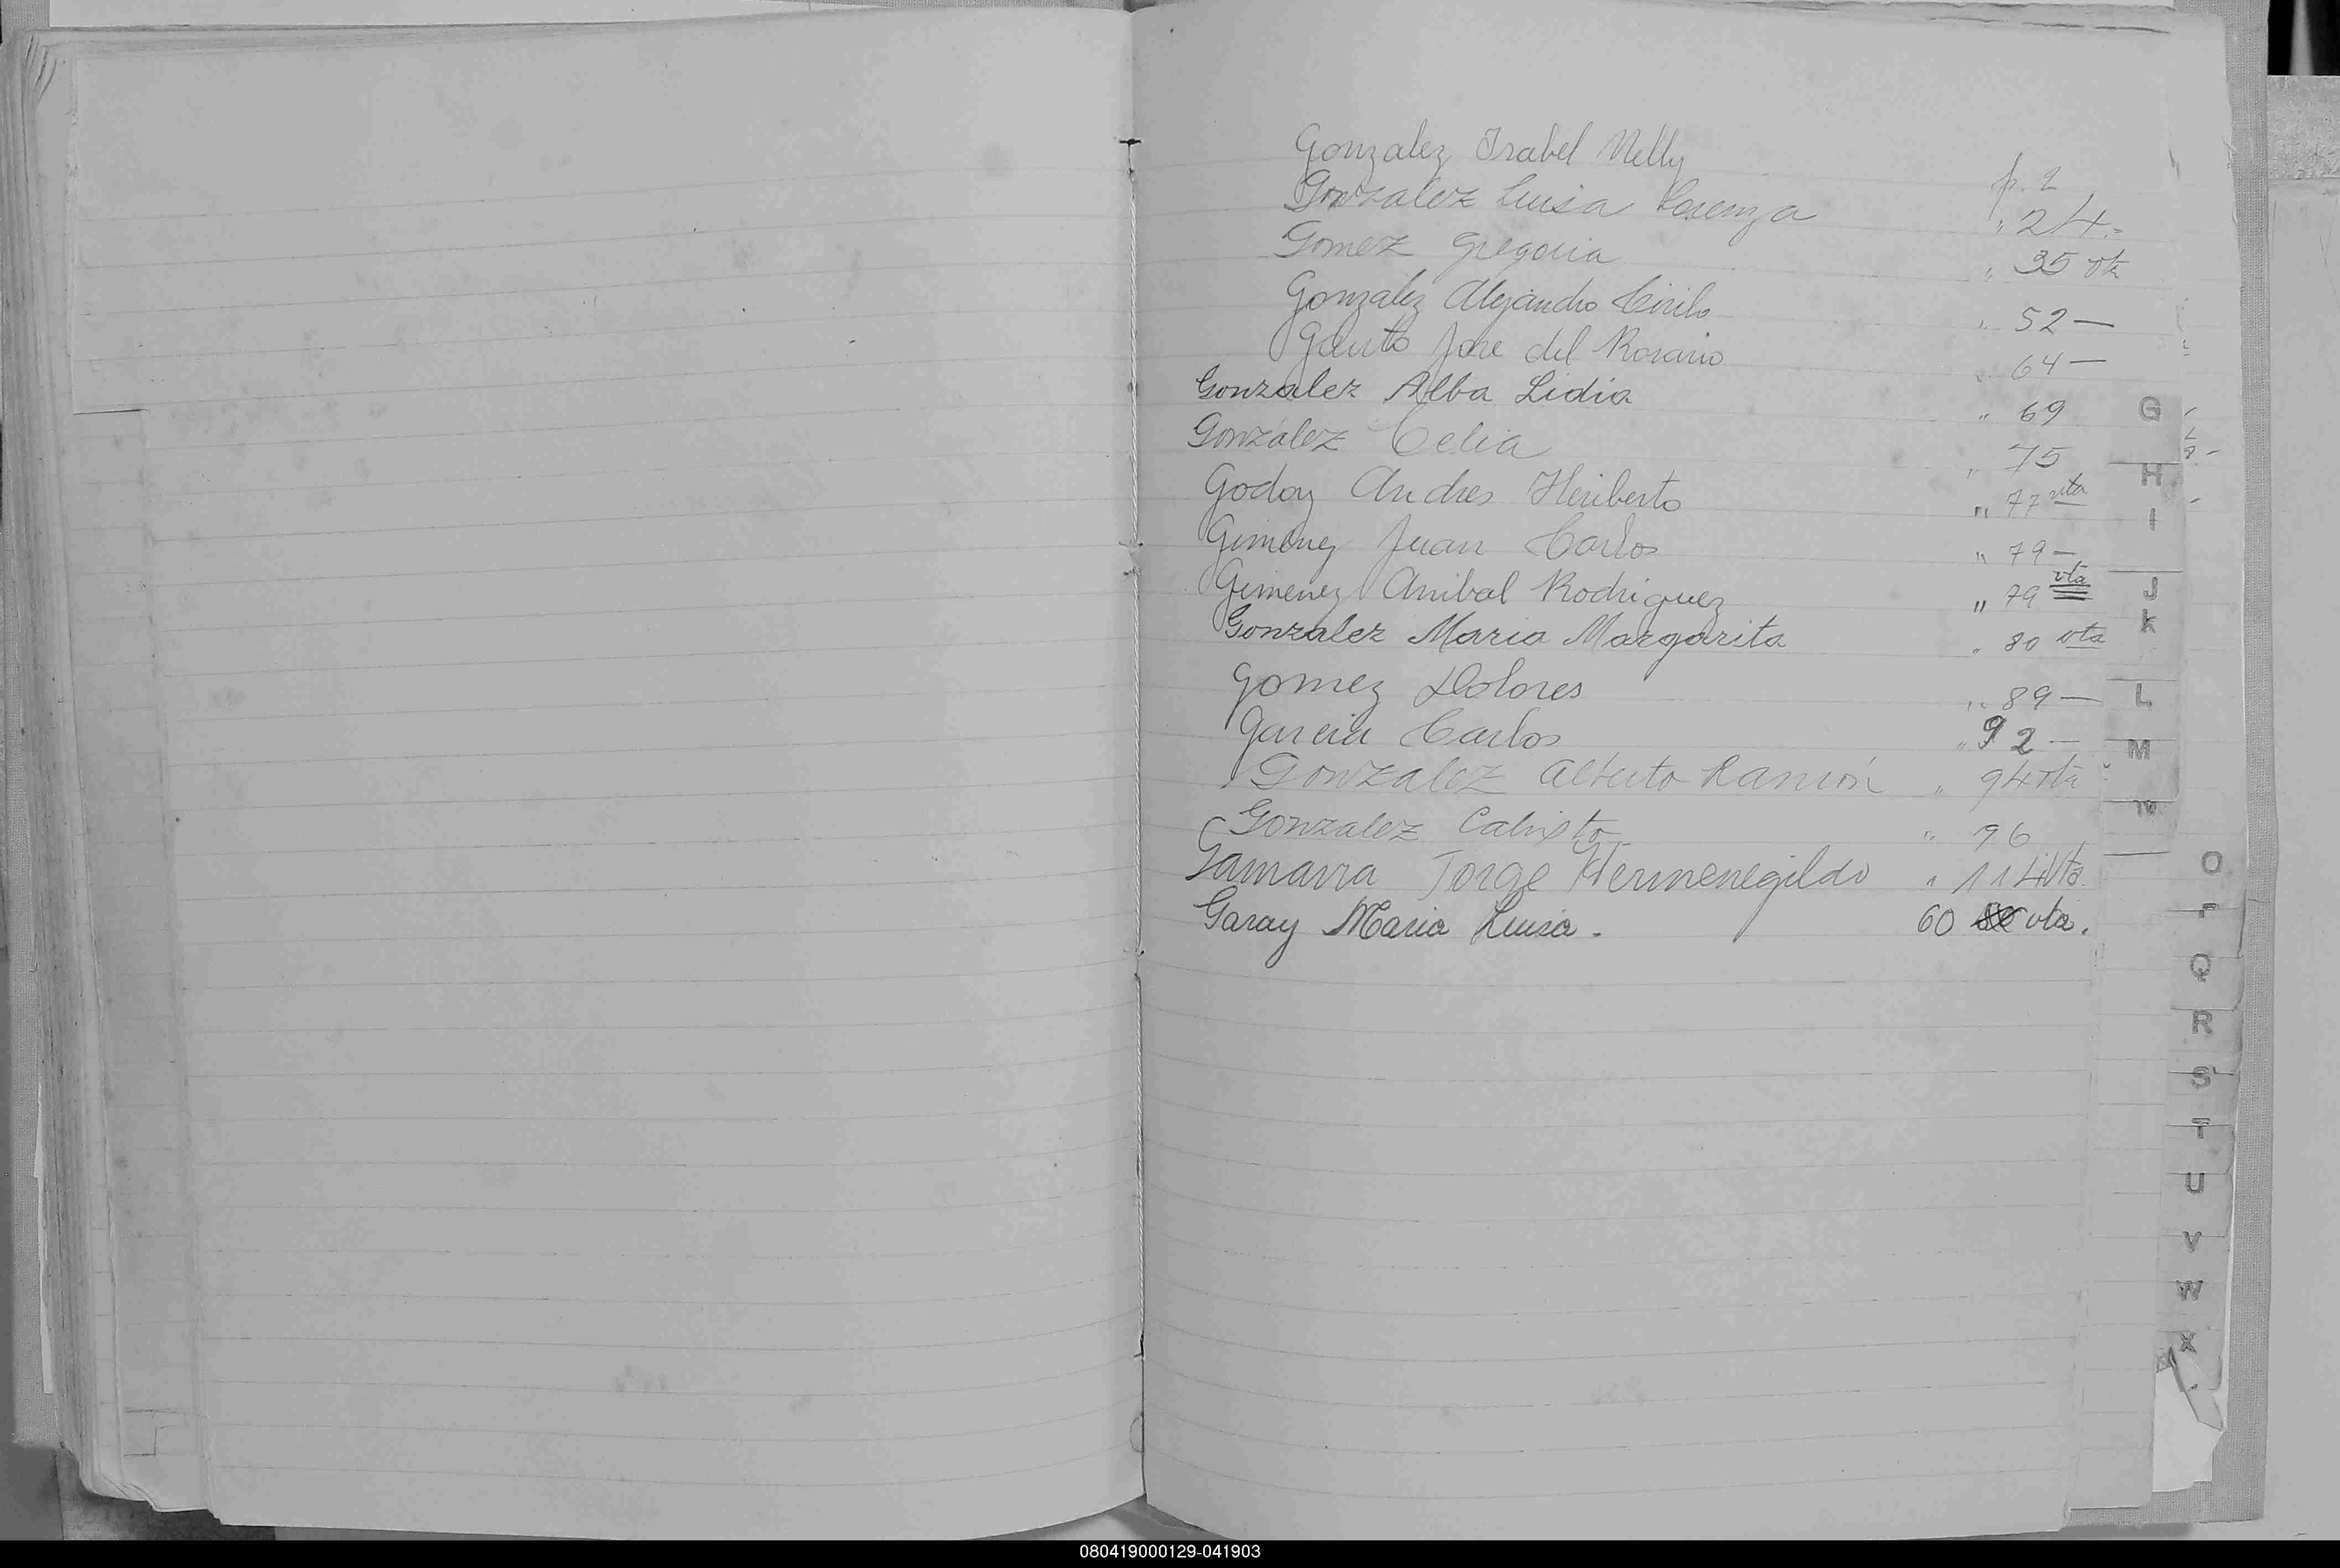 Gonzalez Isabel Nelly p. 2
Gonzalez Luisa Lorenza " 24.=
Gomez Gregoria " 35 vta
Gonzalez Alejandro Cirilo " 52 —
Gauto Jose del Rosario " 64 —
Gonzalez Alba Lidia " 69
Gonzalez Celia " 75
Godoy Andres Heriberto " 77 vta
Gimenez Juan Carlos " 79 —
Gimenez Anibal Rodriguez " 79 vta
Gonzalez Maria Margarita " 80 vta
Gomez Dolores " 89 —
Garcia Carlos " 92 —
Gonzalez Alberto Ramón " 94 vta
Gonzalez Calixto " 96
Gamarra Jorge Hermenegildo " 114 Vta
Garay Maria Luisa. 60 vta.
G
H
I
J
K
L
M
N
O
P
Q
R
S
T
U
V
W
X
080419000129-041903